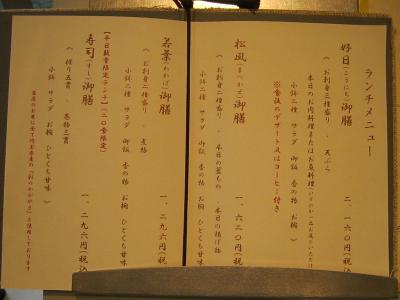 ランチメニュー
好日(こうじつ)御膳 二、一六〇円(税込
(お刺身三種盛り 、 天ぷら
本日のお肉料理またはお魚料理
小鉢二種 サラダ 御飯 香の物 お椀 )
※食後のデザート又はコーヒー付き
松風(まつかぜ)御膳 一、六二〇円(税込
(お刺身二種盛り 、 本日の蒸もの 、 本日の揚げ物
小鉢二種 サラダ 御飯 香の物 お椀 ひとくち甘味
若葉(わかば)御膳 一、二九六円(税込
(お刺身二種盛り 、 煮物
小鉢二種 サラダ 御飯 香の物 お椀 ひとくち甘味
【平日数量限定ランチ】(二〇食限定)
寿司(すし)御膳 一、二九六円(税込
(握り五貫 、 巻物三貫
小鉢 サラダ お椀 ひとくち甘味 )
当店のお米は全て埼玉県産の「彩のかがやき」を使用しております